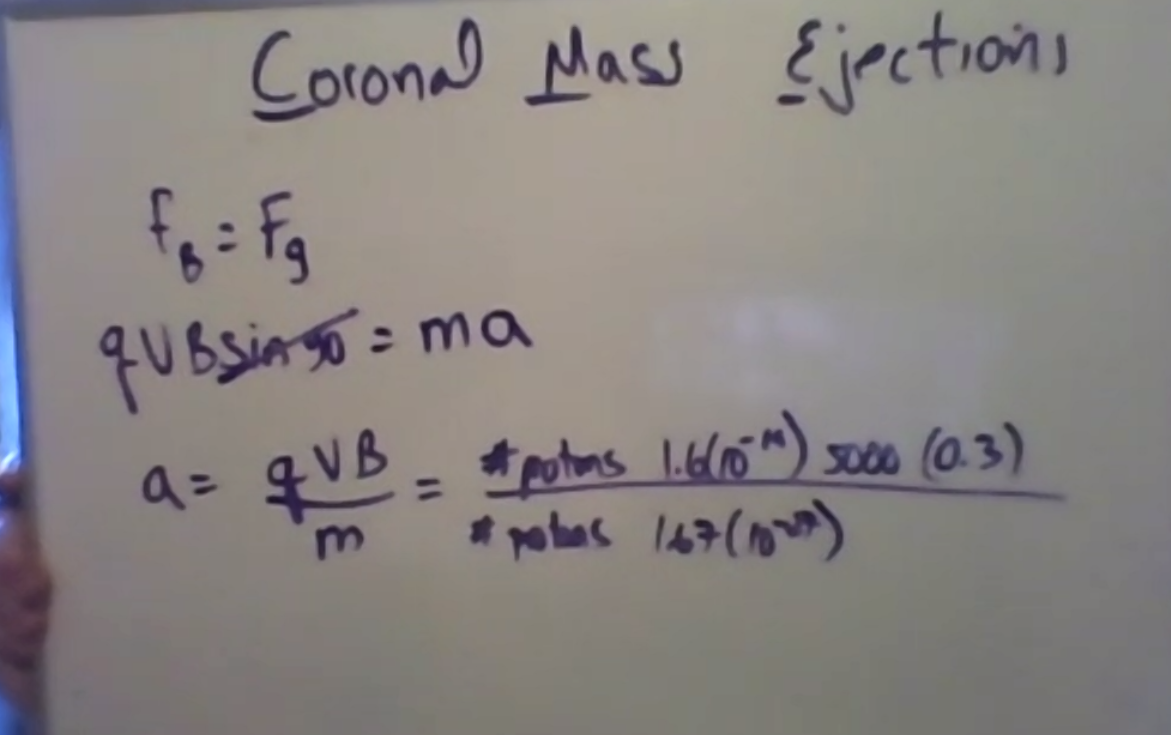 Coronal Mass Ejections
f_B = F_g
qVB sin 90 = ma
a = qVB/m = # potons 1.6(10^-19) 5000 (0.3) / # potons 1.67(10^-27)